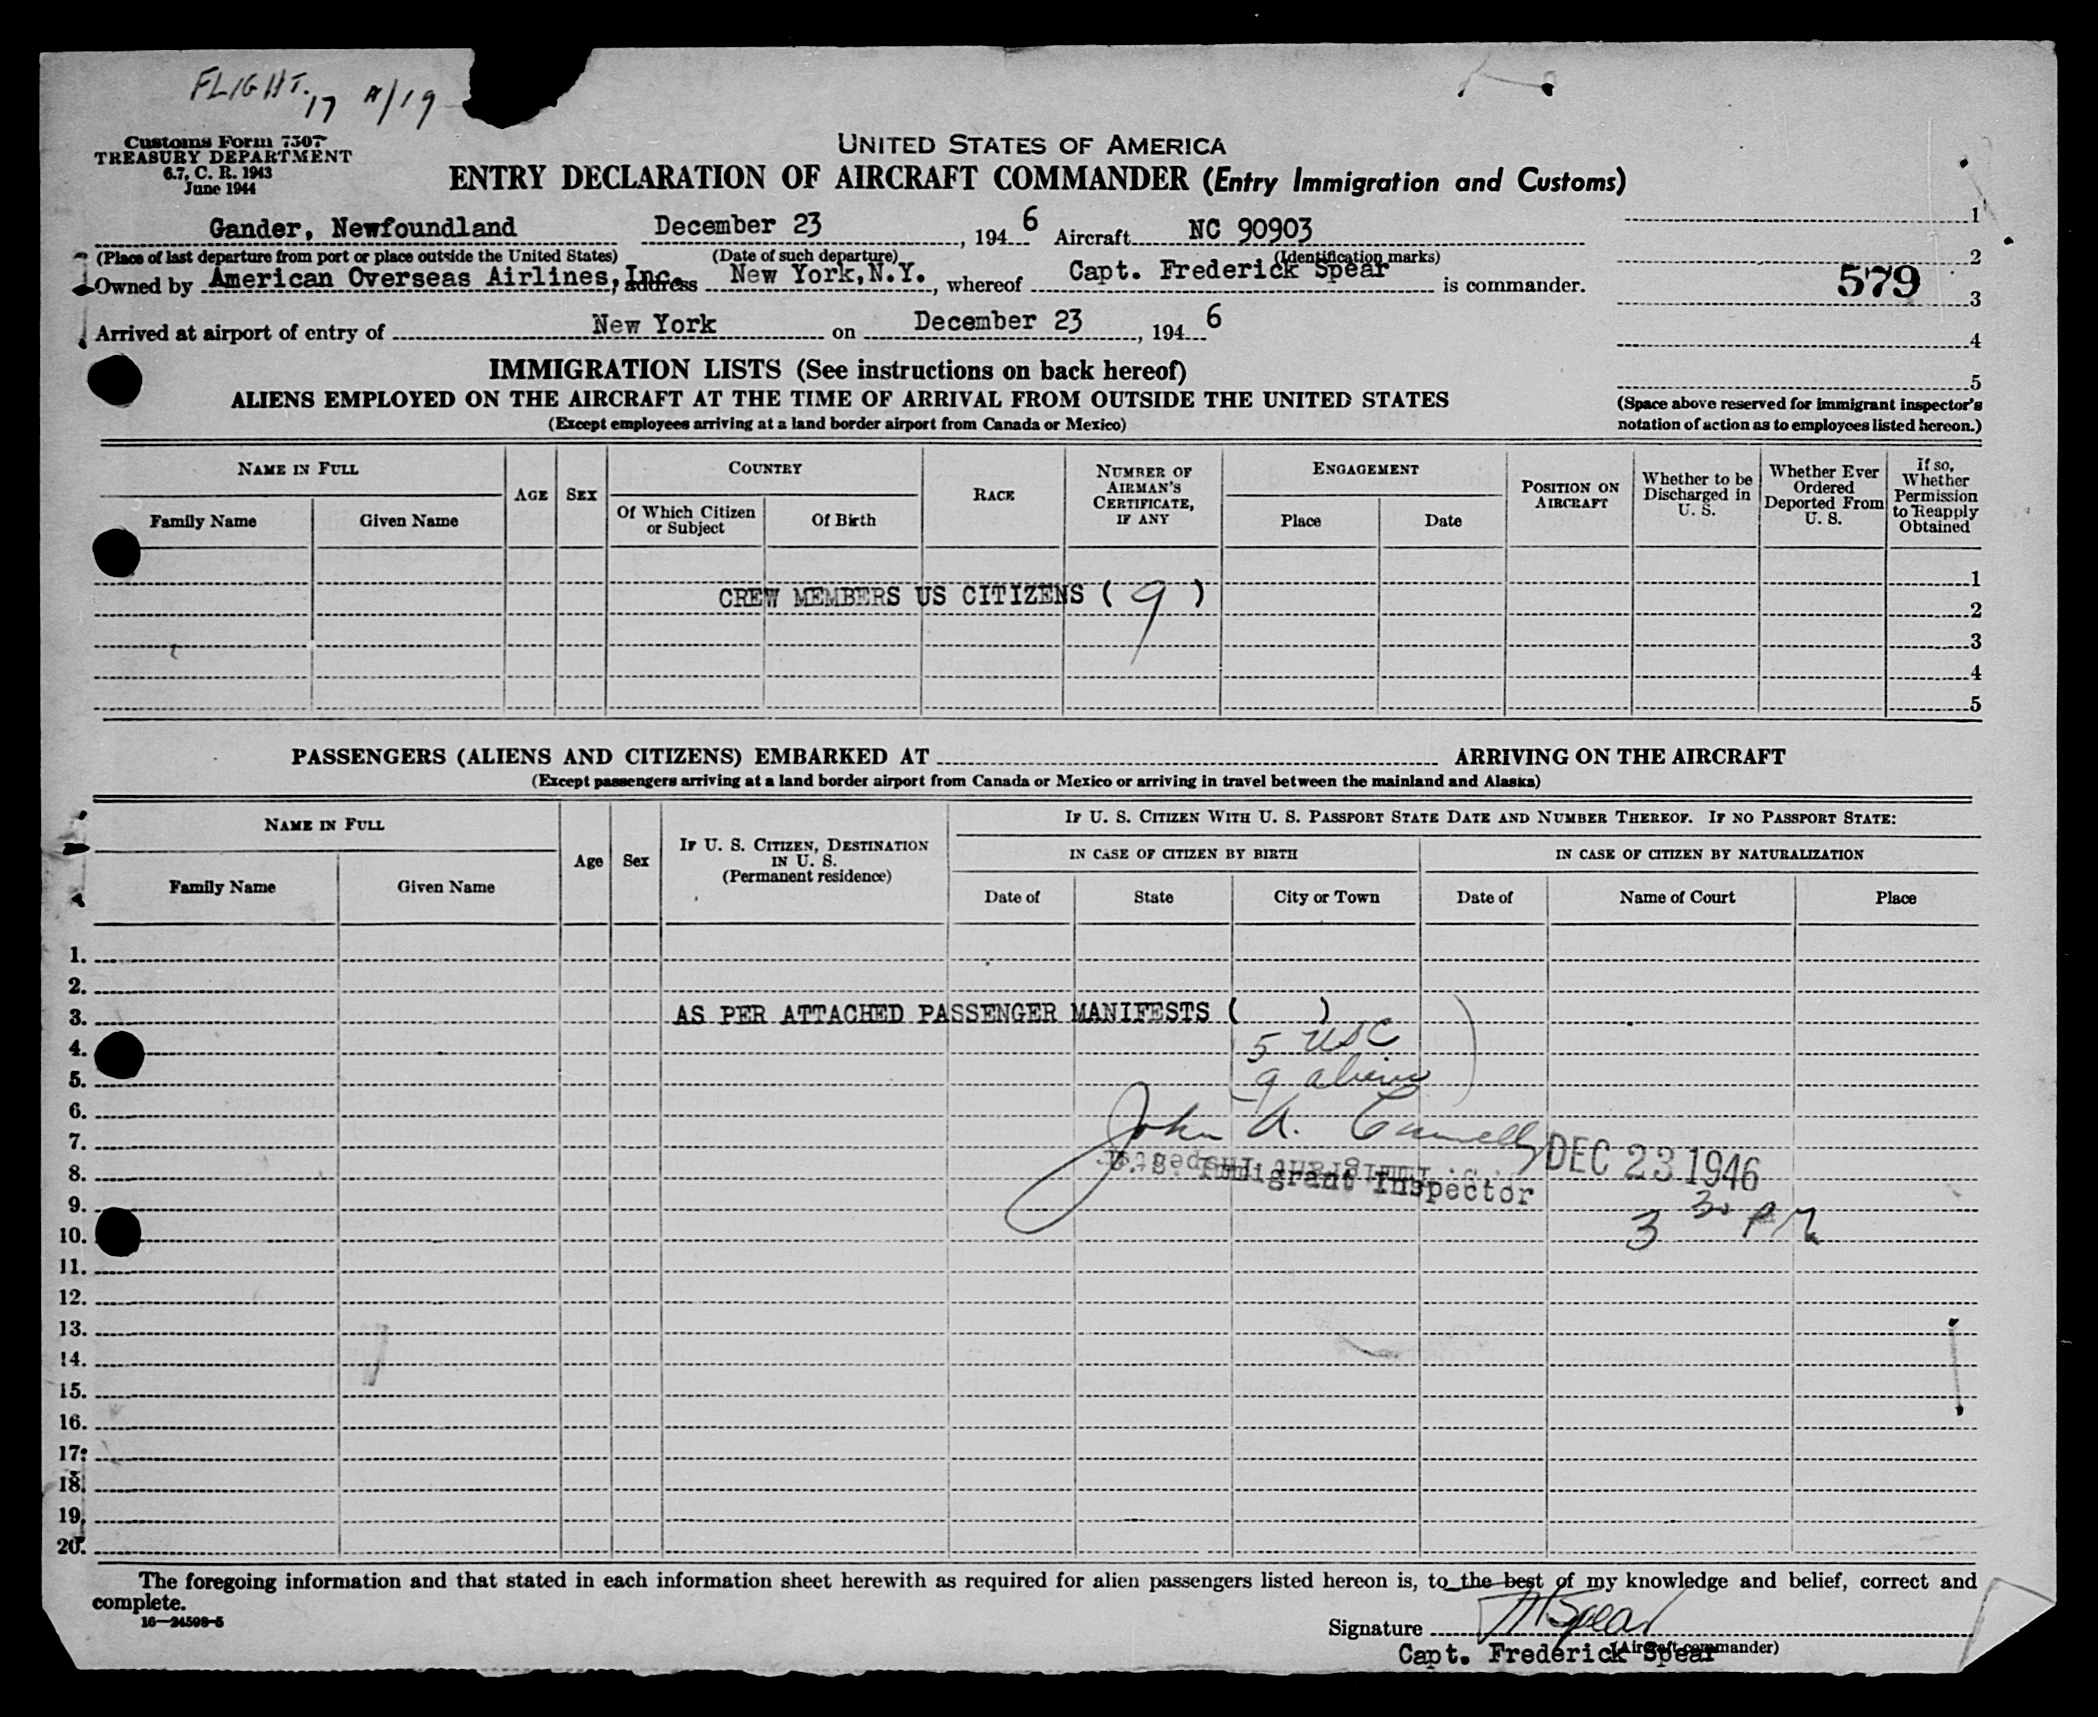 FLIGHT. 17 A/19
Customs Form 7507
TREASURY DEPARTMENT
6.7, C. R. 1943
June 1944
UNITED STATES OF AMERICA
ENTRY DECLARATION OF AIRCRAFT COMMANDER (Entry Immigration and Customs)
Gander, Newfoundland December 23, 1946 Aircraft NC 90903
(Place of last departure from port or place outside the United States) (Date of such departure) (Identification marks)
Owned by American Overseas Airlines, Inc. address New York, N.Y., whereof Capt. Frederick Spear is commander.
Arrived at airport of entry of New York on December 23, 1946
1
2
579
3
4
5
(Space above reserved for immigrant inspector's
notation of action as to employees listed hereon.)
IMMIGRATION LISTS (See instructions on back hereof)
ALIENS EMPLOYED ON THE AIRCRAFT AT THE TIME OF ARRIVAL FROM OUTSIDE THE UNITED STATES
(Except employees arriving at a land border airport from Canada or Mexico)
NAME IN FULL
Family Name
Given Name
AGE
SEX
COUNTRY
Of Which Citizen
or Subject
Of Birth
RACE
NUMBER OF
AIRMAN'S
CERTIFICATE,
IF ANY
ENGAGEMENT
Place
Date
POSITION ON
AIRCRAFT
Whether to be
Discharged in
U. S.
Whether Ever
Ordered
Deported From
U. S.
If so,
Whether
Permission
to Reapply
Obtained
1
CREW MEMBERS US CITIZENS ( 9 )
2
3
4
5
PASSENGERS (ALIENS AND CITIZENS) EMBARKED AT ARRIVING ON THE AIRCRAFT
(Except passengers arriving at a land border airport from Canada or Mexico or arriving in travel between the mainland and Alaska)
NAME IN FULL
Family Name
Given Name
Age
Sex
IF U. S. CITIZEN, DESTINATION
IN U. S.
(Permanent residence)
IF U. S. CITIZEN WITH U. S. PASSPORT STATE DATE AND NUMBER THEREOF. IF NO PASSPORT STATE:
IN CASE OF CITIZEN BY BIRTH
IN CASE OF CITIZEN BY NATURALIZATION
Date of
State
City or Town
Date of
Name of Court
Place
1.
2.
3. AS PER ATTACHED PASSENGER MANIFESTS ( )
4. 5 USC
5. 9 aliens
6.
7. John A. DEC 23 1946
8. U. S. Immigrant Inspector
9.
10. 3 30 PM
11.
12.
13.
14.
15.
16.
17.
18.
19.
20.
The foregoing information and that stated in each information sheet herewith as required for alien passengers listed hereon is, to the best of my knowledge and belief, correct and
complete.
16—24598-5
Signature Spear
(Aircraft commander)
Capt. Frederick Spear